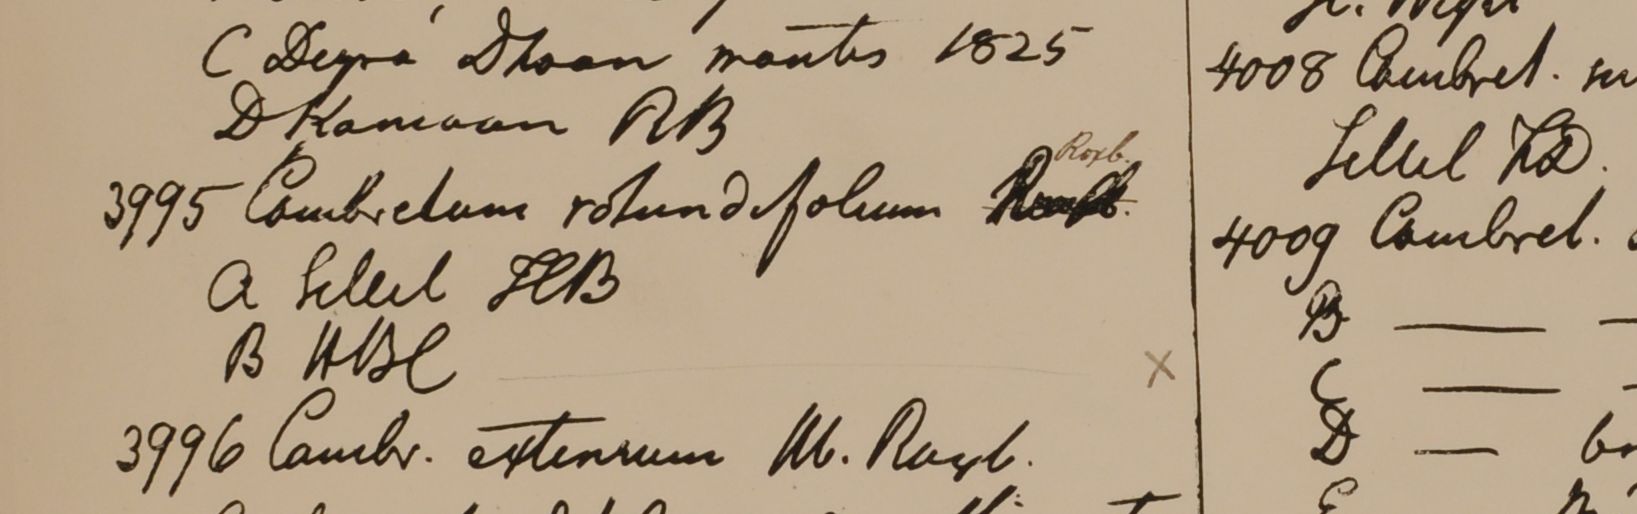 C Deyra Dhoon montes 1825
D Kamaon RB
3995 Combretum rotundifolium Roxb.
A Silhet HB
B HBC
X
3996 Combr. extensum Hb. Roxb.
4008 Combret.
Silhet FD.
4009 Combret.
B — —
C — —
D —
E